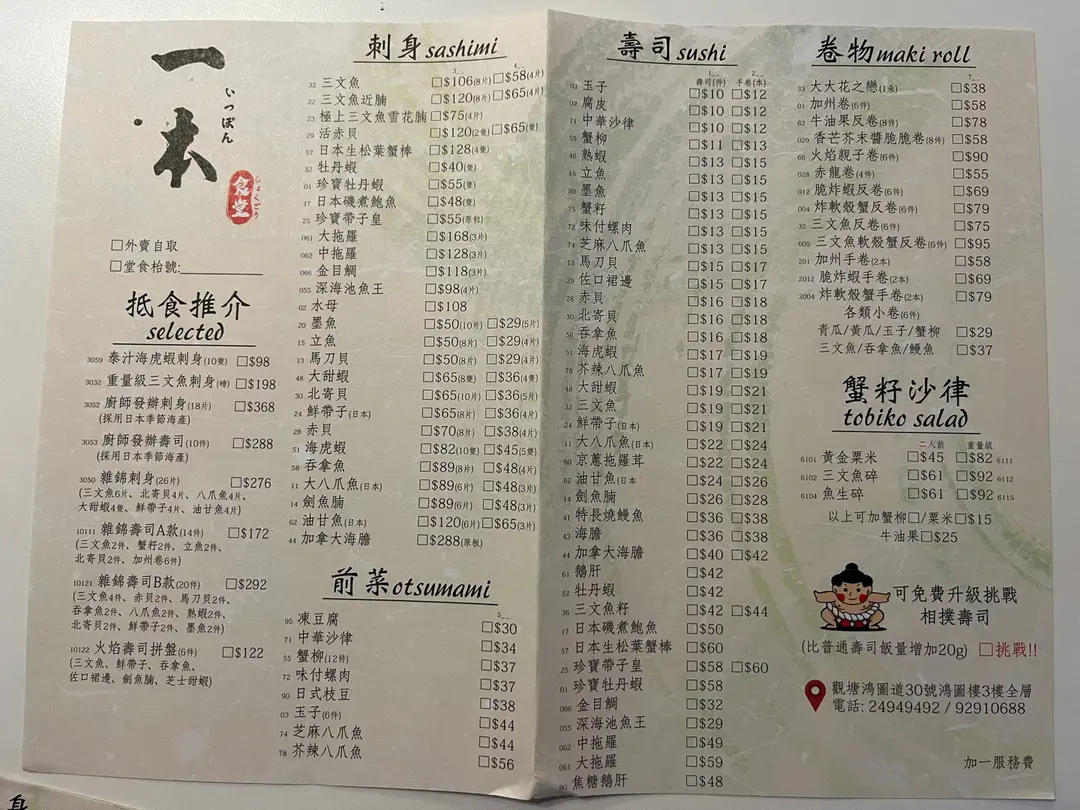 一本
いっぽん
食堂
しょくどう
☐外賣自取
☐堂食枱號:
抵食推介
selected
3059 泰汁海虎蝦刺身(10隻) ☐$98
3032 重量級三文魚刺身(磅) ☐$198
3052 廚師發辦刺身(18片) ☐$368
(採用日本季節海產)
3053 廚師發辦壽司(10件) ☐$288
(採用日本季節海產)
3050 雜錦刺身(26片) ☐$276
(三文魚6片、北寄貝4片、八爪魚4片、
大甜蝦4隻、鮮帶子4片、油甘魚4片)
10111 雜錦壽司A款(14件) ☐$172
(三文魚2件、蟹籽2件、立魚2件、
北寄貝2件、加州卷6件)
10121 雜錦壽司B款(20件) ☐$292
(三文魚4件、赤貝2件、馬刀貝2件、
吞拿魚2件、八爪魚2件、熟蝦2件、
北寄貝2件、鮮帶子2件、墨魚2件)
10122 火焰壽司拼盤(6件) ☐$122
(三文魚、鮮帶子、吞拿魚、
佐口裙邊、劍魚腩、芝士甜蝦)
刺身 sashimi
3__ 4__
32 三文魚 ☐$106(8片) ☐$58(4片)
22 三文魚近腩 ☐$120(8片) ☐$65(4片)
23 極上三文魚雪花腩 ☐$75(4片)
29 活赤貝 ☐$120(2隻) ☐$65(隻)
57 日本生松葉蟹棒 ☐$128(4隻)
52 牡丹蝦 ☐$40(隻)
01 珍寶牡丹蝦 ☐$55(隻)
17 日本磯煮鮑魚 ☐$48(隻)
25 珍寶帶子皇 ☐$55(原粒)
061 大拖羅 ☐$168(3片)
062 中拖羅 ☐$128(3片)
066 金目鯛 ☐$118(3片)
055 深海池魚王 ☐$98(4片)
02 水母 ☐$108
20 墨魚 ☐$50(10片) ☐$29(5片)
15 立魚 ☐$50(8片) ☐$29(4片)
13 馬刀貝 ☐$50(8片) ☐$29(4片)
48 大甜蝦 ☐$65(8隻) ☐$36(4隻)
30 北寄貝 ☐$65(10片) ☐$36(5片)
24 鮮帶子(日本) ☐$65(8片) ☐$36(4片)
28 赤貝 ☐$70(8片) ☐$38(4片)
51 海虎蝦 ☐$82(10隻) ☐$45(5隻)
58 吞拿魚 ☐$89(8片) ☐$48(4片)
11 大八爪魚(日本) ☐$89(6片) ☐$48(3片)
14 劍魚腩 ☐$89(6片) ☐$48(3片)
62 油甘魚(日本) ☐$120(6片) ☐$65(3片)
44 加拿大海膽 ☐$288(原板)
前菜 otsumami
5__
95 凍豆腐 ☐$30
71 中華沙律 ☐$34
55 蟹柳(12件) ☐$37
72 味付螺肉 ☐$37
90 日式枝豆 ☐$38
03 玉子(6件) ☐$44
74 芝麻八爪魚 ☐$44
78 芥辣八爪魚 ☐$56
壽司 sushi
1__ 2__
壽司(件) 手卷(本)
03 玉子 ☐$10 ☐$12
02 腐皮 ☐$10 ☐$12
71 中華沙律 ☐$10 ☐$12
55 蟹柳 ☐$11 ☐$13
46 熟蝦 ☐$13 ☐$15
15 立魚 ☐$13 ☐$15
20 墨魚 ☐$13 ☐$15
75 蟹籽 ☐$13 ☐$15
72 味付螺肉 ☐$13 ☐$15
74 芝麻八爪魚 ☐$13 ☐$15
13 馬刀貝 ☐$15 ☐$17
29 佐口裙邊 ☐$15 ☐$17
28 赤貝 ☐$16 ☐$18
30 北寄貝 ☐$16 ☐$18
58 吞拿魚 ☐$16 ☐$18
51 海虎蝦 ☐$17 ☐$19
78 芥辣八爪魚 ☐$17 ☐$19
48 大甜蝦 ☐$19 ☐$21
32 三文魚 ☐$19 ☐$21
24 鮮帶子(日本) ☐$19 ☐$21
11 大八爪魚(日本) ☐$22 ☐$24
60 京蔥拖羅茸 ☐$22 ☐$24
62 油甘魚(日本) ☐$24 ☐$26
14 劍魚腩 ☐$26 ☐$28
41 特長燒鰻魚 ☐$36 ☐$38
43 海膽 ☐$36 ☐$38
44 加拿大海膽 ☐$40 ☐$42
61 鵝肝 ☐$42
52 牡丹蝦 ☐$42
36 三文魚籽 ☐$42 ☐$44
17 日本磯煮鮑魚 ☐$50
57 日本生松葉蟹棒 ☐$60
25 珍寶帶子皇 ☐$58 ☐$60
01 珍寶牡丹蝦 ☐$58
066 金目鯛 ☐$32
055 深海池魚王 ☐$29
062 中拖羅 ☐$49
061 大拖羅 ☐$59
90 焦糖鵝肝 ☐$48
卷物 maki roll
7__
33 大大花之戀(1朵) ☐$38
01 加州卷(6件) ☐$58
62 牛油果反卷(8件) ☐$78
029 香芒芥末醬脆脆卷(8件) ☐$58
66 火焰親子卷(6件) ☐$90
028 赤龍卷(4件) ☐$55
012 脆炸蝦反卷(6件) ☐$69
004 炸軟殼蟹反卷(6件) ☐$79
32 三文魚反卷(6件) ☐$75
005 三文魚軟殼蟹反卷(6件) ☐$95
201 加州手卷(2本) ☐$58
2012 脆炸蝦手卷(2本) ☐$69
2004 炸軟殼蟹手卷(2本) ☐$79
各類小卷(6件)
青瓜/黃瓜/玉子/蟹柳 ☐$29
三文魚/吞拿魚/鰻魚 ☐$37
蟹籽沙律
tobiko salad
二人前 重量級
6101 黃金粟米 ☐$45 ☐$82 6111
6102 三文魚碎 ☐$61 ☐$92 6112
6104 魚生碎 ☐$61 ☐$92 6115
以上可加蟹柳☐/粟米☐$15
牛油果☐$25
可免費升級挑戰
相撲壽司
(比普通壽司飯量增加20g) ☐挑戰!!
觀塘鴻圖道30號鴻圖樓3樓全層
電話: 24949492 / 92910688
加一服務費
身